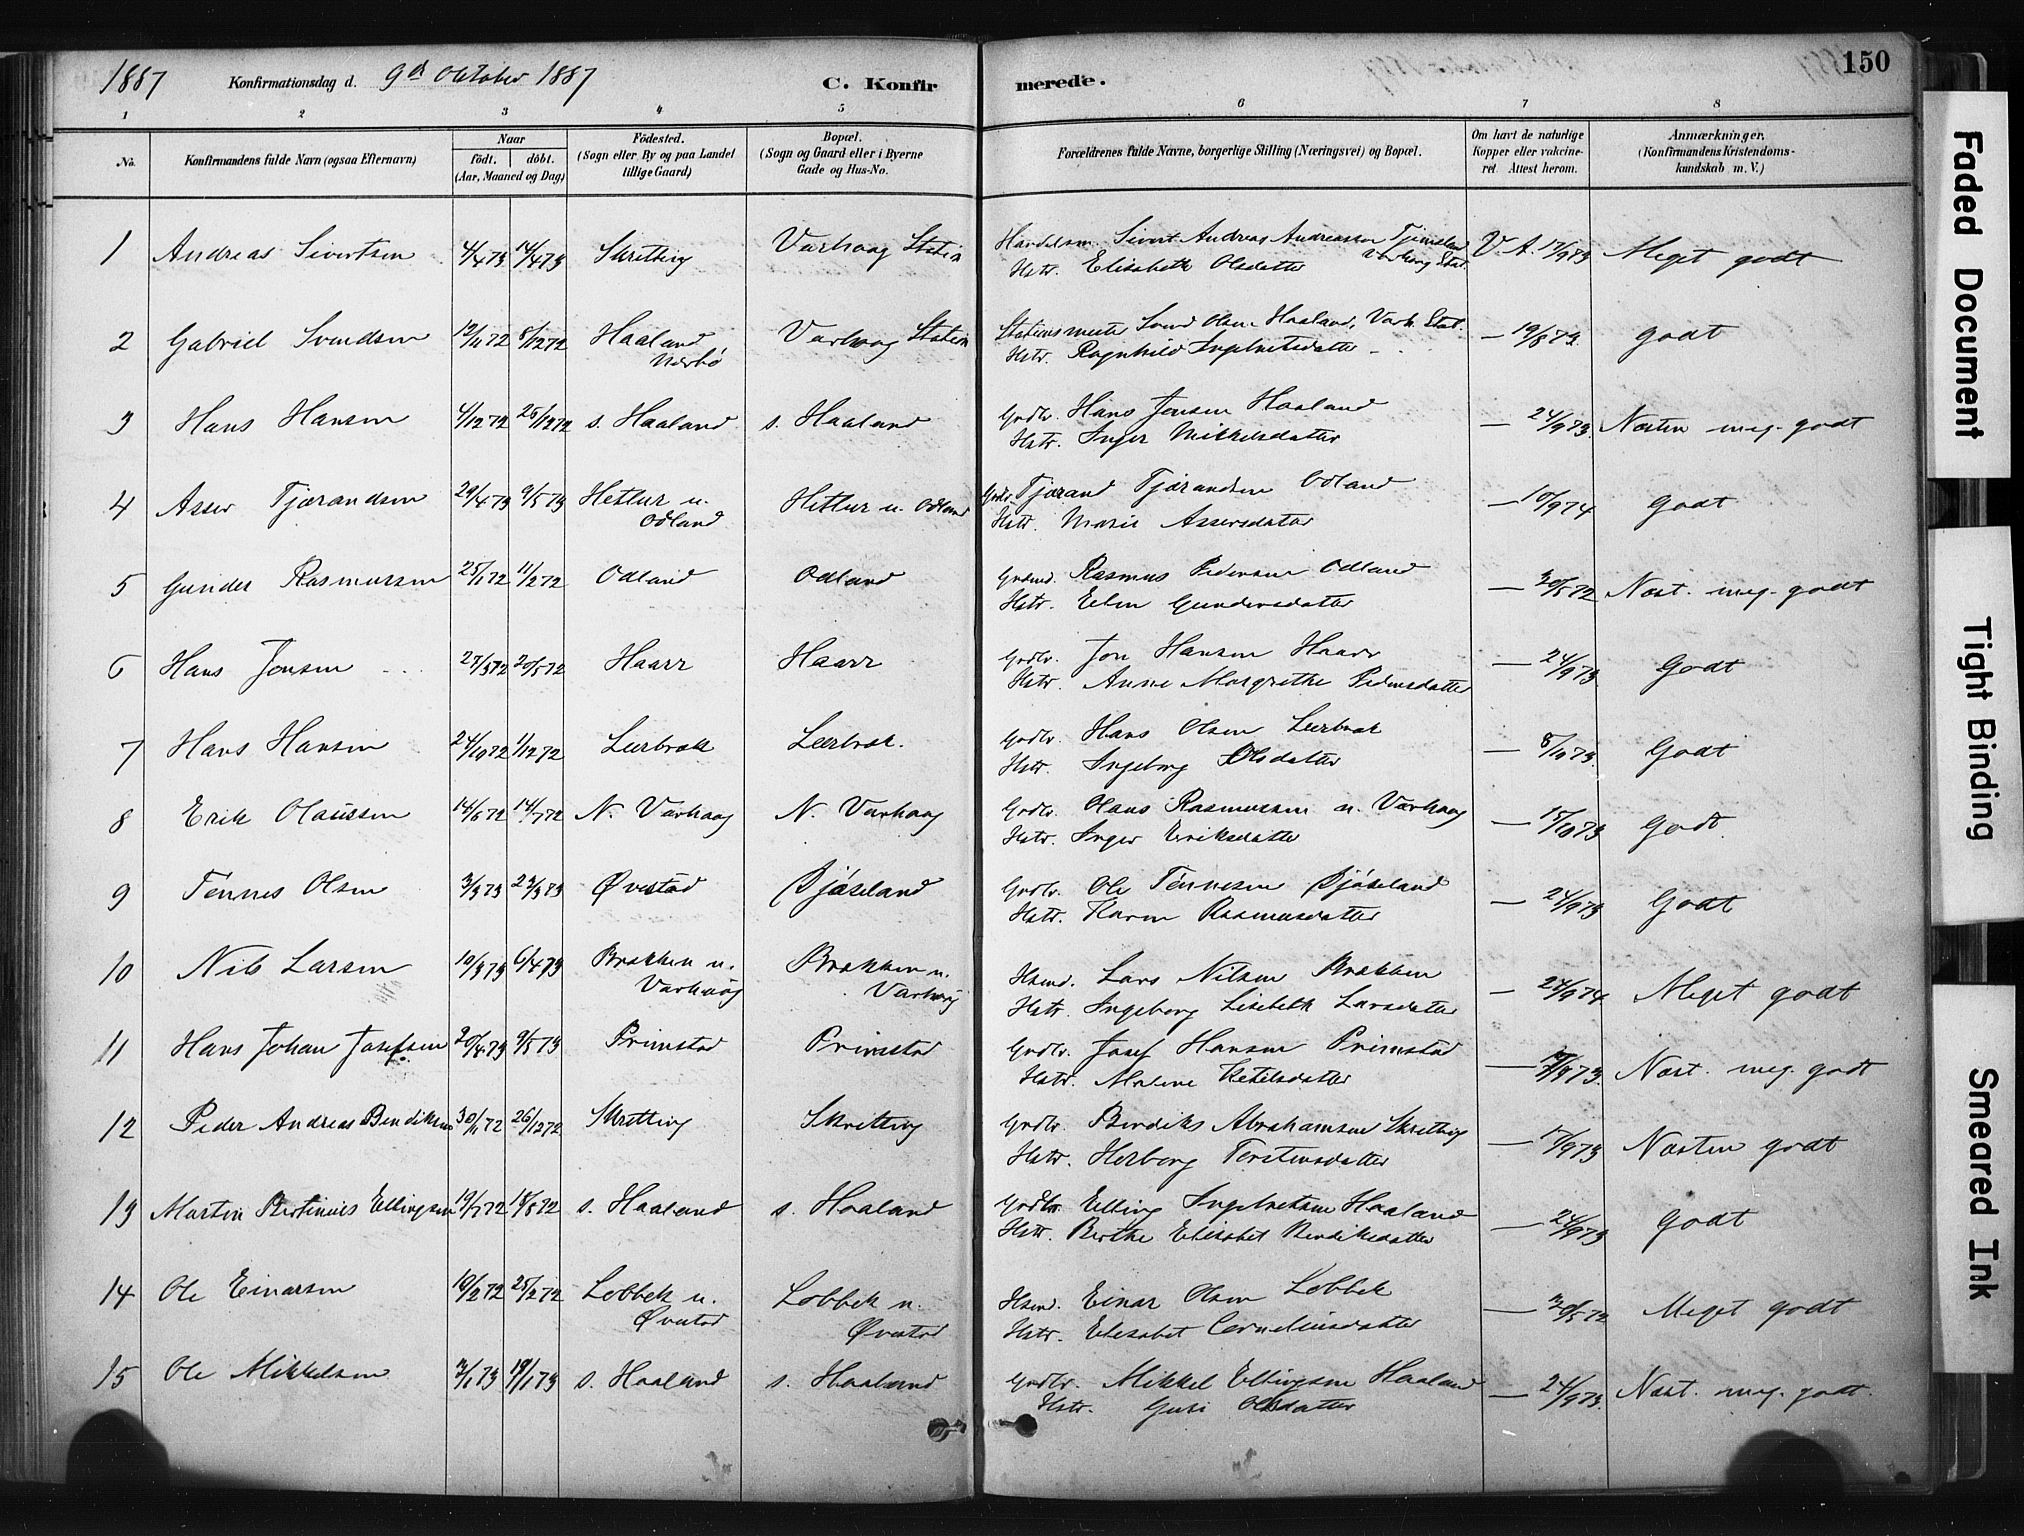 1887 Konfirmationsdag d. 9de October 1887 C. Konfirmerede. 150
1 2 3 4 5 6 7 8
No. Konfirmandens fulde Navn (ogsaa Efternavn) Naar födt. döbt. (Aar, Maaned og Dag) Födested. (Sogn eller By og paa Landet tillige Gaard) Bopæl. (Sogn og Gaard eller i Byerne Gade og Hus-No. Forældrenes fulde Navne, borgerlige Stilling (Næringsvei) og Bopæl. Om havt de naturlige Kopper eller vakcineret. Attest herom. Anmærkninger. (Konfirmandens Kristendomskundskab m. V.)
1 Andreas Sivertsen 4/4 73 14/4 73 Skretting Varhaug Station Handelsm. Sivert Andreas Andreassen Tjemsland Varhaug Stat. V. A. 17/9 73 Meget godt
Hstr. Elisabeth Olsdatter
2 Gabriel Svendsen 12/11 72 8/12 72 Haaland Nærbø Varhaug Station Stationsmester Svend Olsen Haaland, Varh. Stat. — 19/8 73 godt
Hstr. Ragnhild Ingebretsdatter
3 Hans Hansen 4/12 72 26/12 72 s. Haaland s. Haaland Grdbr. Hans Jensen Haaland — 24/9 73 Næsten meg. godt
Hstr. Inger Mikkelsdatter
4 Asser Tjærandsen 29/4 73 9/5 73 Hettur u. Odland Hettur u. Odland Grdbr. Tjærand Tjærandsen Odland — 10/9 74 Godt
Hstr. Marie Assersdatter
5 Gunder Rasmussen 25/1 72 11/2 72 Odland Odland Rasmus Pedersen Odland — 30/5 72 Næst. meg. godt
Hstr. Elen Gundersdatter
6 Hans Jonsen 27/3 72 20/5 72 Haarr Haarr Grdbr. Jon Hansen Haarr — 24/9 73 Godt
Hstr. Anne Margrethe Pedersdatter
7 Hans Hansen 24/10 72 1/12 72 Lerbræk Lerbræk. Grdbr. Hans Olsen Lerbræk — 8/10 73 Godt
Hstr. Ingeborg Olsdatter
8 Erik Olaussen 14/6 72 14/7 72 N. Varhaug N. Varhaug Grdbr. Olaus Rasmussen n. Varhaug — 15/10 73 Godt.
Hstr. Inger Eriksdatter
9 Tönnes Olsen 3/3 73 23/3 73 Øvestad Bjåseland Grdbr. Ole Tönnesen Bjåseland — 24/9 73 Godt
Hstr. Karen Rasmusdatter
10 Nils Larsen 10/3 73 6/4 73 Brækken u. Varhaug Brækken u. Varhaug Husmd. Lars Nilsen Brækken — 24/9 74 Meget godt
Hstr. Ingeborg Lisebeth Larsdatter
11 Hans Johan Josefsen 20/4 73 9/5 73 Primstad Primstad Grdbr. Josef Hansen Primstad — 17/9 73. Næst. meg. godt
Hstr. Malene Ketelsdatter
12 Peder Andreas Bendiksen 30/11 72 26/12 72 Skretting Skretting Grdbr. Bendiks Abrahamsen Skretting — 17/9 73 Næsten godt
Hstr. Herborg Torstensdatter
13 Martin Bertinius Ellingsen 19/7 72 18/8 72 s. Haaland s. Haaland Grdbr. Elling Ingebretsen Haaland — 24/9 73 Godt
Hstr. Berthe Elisabet Bendiksdatter
14 Ole Einarsen 10/2 72 25/2 72 Lobbek u. Øvestad Lobbek u. Øvestad Husmd. Einar Olsen Lobbek — 30/5 72 Meget godt
Hstr. Elisabet Corneliusdatter
15 Ole Mikkelsen 3/1 73 19/1 73 s. Haaland s. Haaland Grdbr. Mikkel Ellingsen Haaland — 24/9 73. Næst. meg. godt.
Hstr. Guri Olsdatter
Faded Document
Tight Binding
Smeared Ink